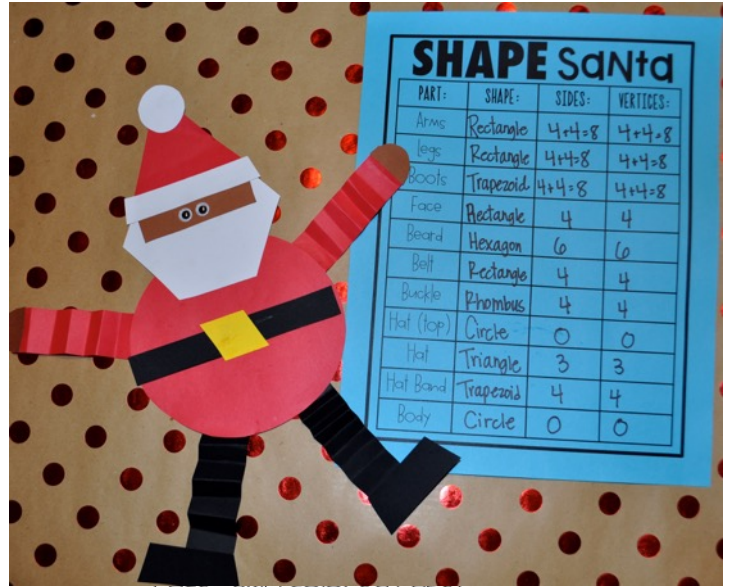 SHAPE Santa
PART: SHAPE: SIDES: VERTICES:
Arms Rectangle 4+4=8 4+4=8
legs Rectangle 4+4=8 4+4=8
Boots Trapezoid 4+4=8 4+4=8
Face Rectangle 4 4
Beard Hexagon 6 6
Belt Rectangle 4 4
Buckle Rhombus 4 4
Hat (top) Circle 0 0
Hat Triangle 3 3
Hat Band Trapezoid 4 4
Body Circle 0 0